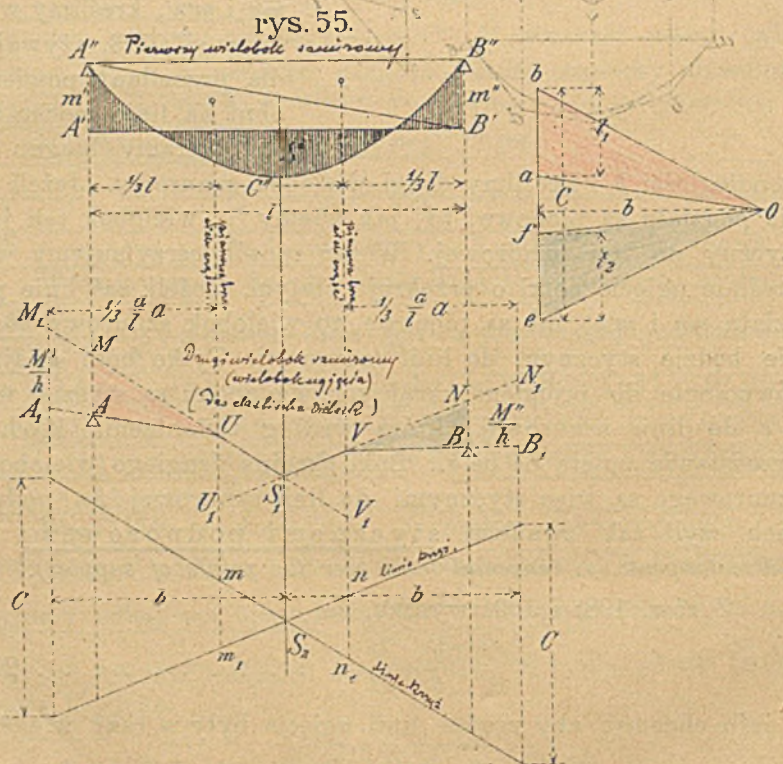 rys. 55.
A" Pierwszy wielobok sznurowy. B"
m' m"
A' B'
⅓ l C" ⅓ l
l
b
t₁
a C b O
f
t₂
e
⅓ a/l a ⅓ a/l a
M₁ M
M'/h
A₁ A
Drugi wielobok sznurowy
(wielobok ugięcia)
(Das elastische Vieleck)
U V N N₁
M"/h
B B₁
U₁ S₁ V₁
m n linie krzyż.
C b b C
m₁ S₂ n₁
linie krzyż.